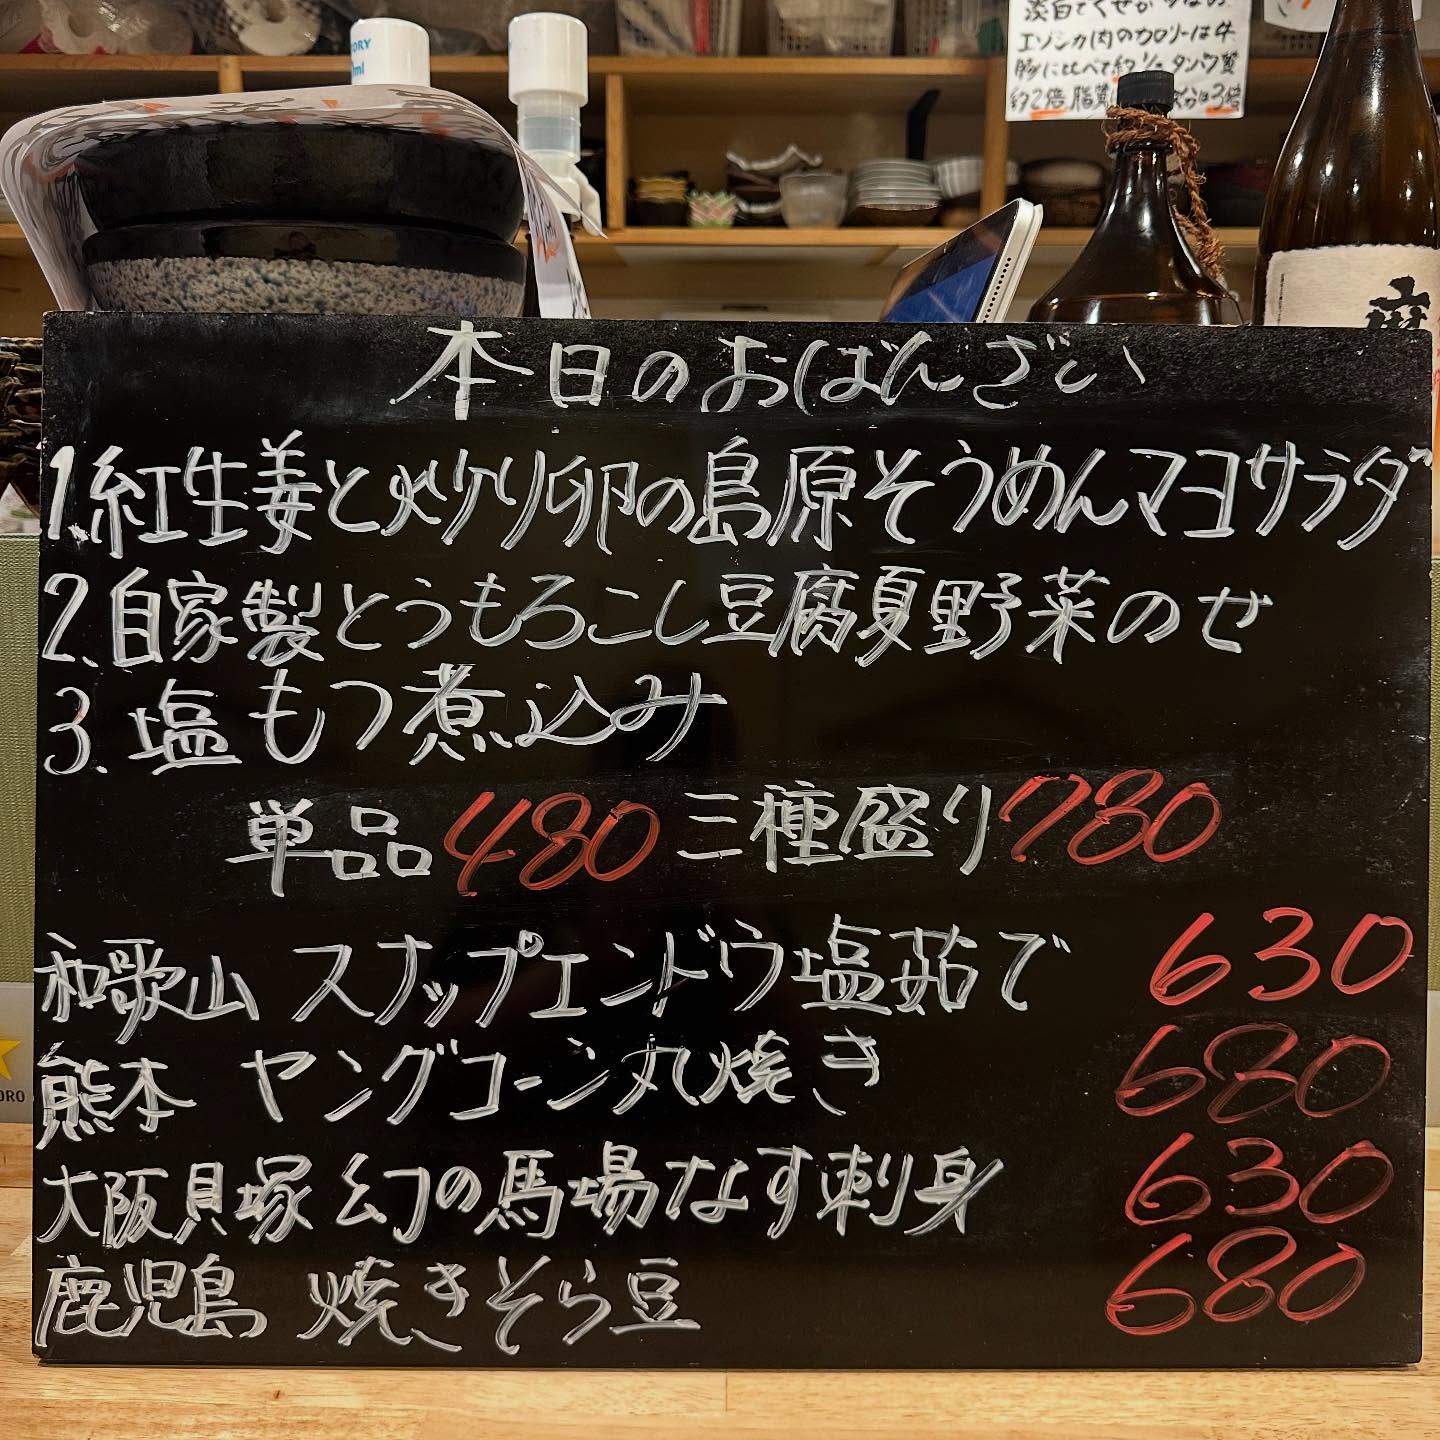 淡白でくせが少なめ
エゾシカ肉のカロリーは牛
豚に比べて約1/2 タンパク質
約2倍 脂質 3倍
本日のおばんざい
1.紅生姜と炒り卵の島原そうめんマヨサラダ
2.自家製とうもろこし豆腐夏野菜のせ
3.塩もつ煮込み
単品480 三種盛り780
和歌山 スナップエンドウ塩茹で 630
熊本 ヤングコーン丸焼き 680
大阪貝塚 幻の馬場なす刺身 630
鹿児島 焼きそら豆 680